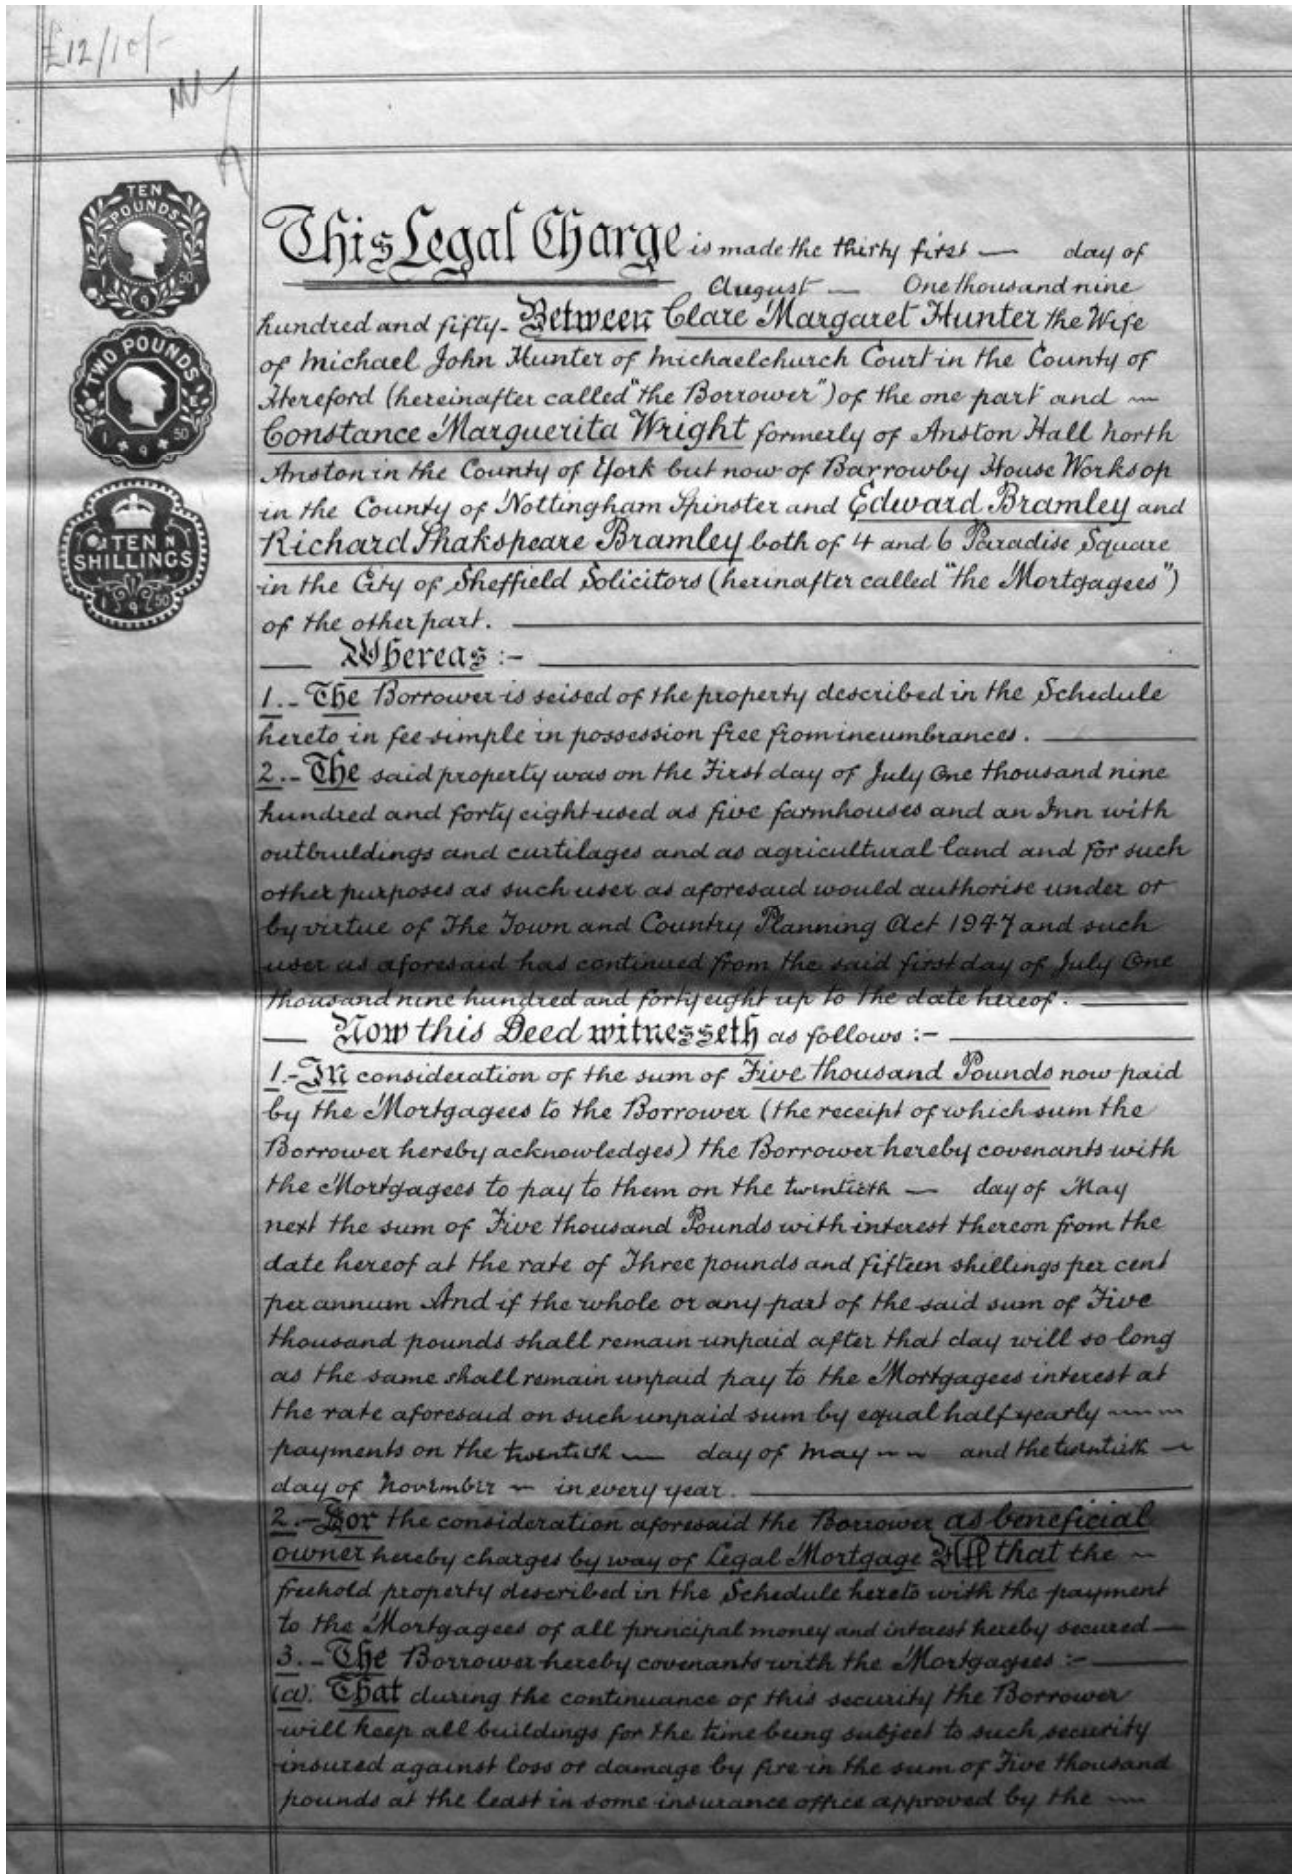 £12/10/-
TEN
POUNDS
1 9 50
TWO POUNDS
1 9 50
TEN
SHILLINGS
1 9 50
This Legal Charge is made the thirty first — day of
August — One thousand nine
hundred and fifty - Between Clare Margaret Hunter the Wife
of Michael John Hunter of Michaelchurch Court in the County of
Hereford (hereinafter called "the Borrower") of the one part and —
Constance Marguerita Wright formerly of Anston Hall North
Anston in the County of York but now of Barrowby House Worksop
in the County of Nottingham Spinster and Edward Bramley and
Richard Shakspeare Bramley both of 4 and 6 Paradise Square
in the City of Sheffield Solicitors (herinafter called "the Mortgagees")
of the other part.
Whereas :-
1.- The Borrower is seised of the property described in the Schedule
hereto in fee simple in possession free from incumbrances.
2.- The said property was on the First day of July One thousand nine
hundred and forty eight used as five farmhouses and an Inn with
outbuildings and curtilages and as agricultural land and for such
other purposes as such user as aforesaid would authorise under or
by virtue of The Town and Country Planning Act 1947 and such
user as aforesaid has continued from the said first day of July One
thousand nine hundred and forty eight up to the date hereof.
Now this Deed witnesseth as follows :-
1.- In consideration of the sum of Five thousand Pounds now paid
by the Mortgagees to the Borrower (the receipt of which sum the
Borrower hereby acknowledges) the Borrower hereby covenants with
the Mortgagees to pay to them on the twentieth — day of May
next the sum of Five thousand Pounds with interest thereon from the
date hereof at the rate of Three pounds and fifteen shillings per cent
per annum And if the whole or any part of the said sum of Five
thousand pounds shall remain unpaid after that day will so long
as the same shall remain unpaid pay to the Mortgagees interest at
the rate aforesaid on such unpaid sum by equal half yearly —
payments on the twentieth — day of May — and the twentieth —
day of November — in every year.
2.- For the consideration aforesaid the Borrower as beneficial
owner hereby charges by way of Legal Mortgage All that the —
freehold property described in the Schedule hereto with the payment
to the Mortgagees of all principal money and interest hereby secured —
3.- The Borrower hereby covenants with the Mortgagees :-
(a). That during the continuance of this security the Borrower
will keep all buildings for the time being subject to such security
insured against loss or damage by fire in the sum of Five thousand
pounds at the least in some insurance office approved by the —